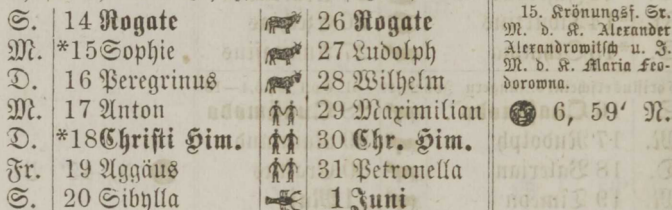 S. 14 Rogate 26 Rogate
M. *15 Sophie 27 Ludolph
D. 16 Peregrinus 28 Wilhelm
M. 17 Anton 29 Maximilian
D. *18 Christi Him. 30 Chr. Him.
Fr. 19 Aggäus 31 Petronella
S. 20 Sibylla 1 Juni
15. Krönungsf. Sr.
M. d. K. Alexander
Alexandrowitsch u. J.
M. d. K. Maria Feo-
dorowna.
6, 59' N.